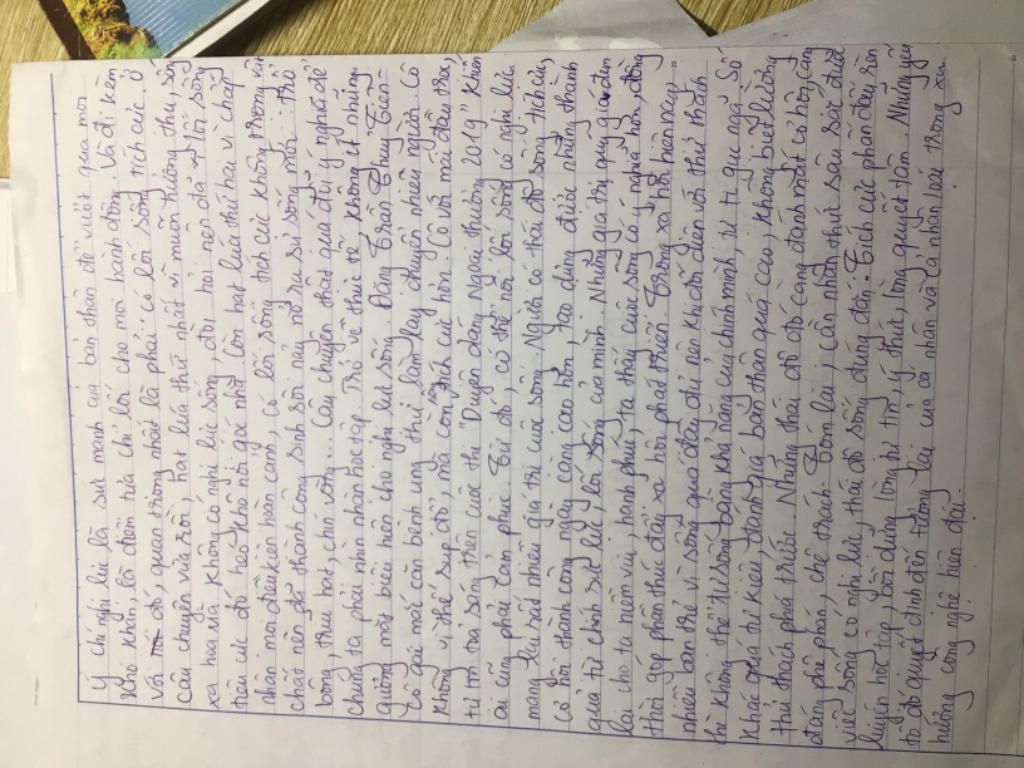 Ý chí nghị lực là sức mạnh của bản thân để vượt qua mọi
khó khăn, là điểm tựa chỉ lối cho mọi hành động. Và đi kèm
với đó, quan trọng nhất là phải có lối sống tích cực. Ở
câu chuyện vừa rồi, hạt lúa thứ nhất vì muốn hưởng thụ, sợ
xa hoa và không có nghị lực sống, đòi hỏi nên đã lối sống
tiêu cực đó héo khô nơi góc nhà. Còn hạt lúa thứ hai vì chấp
nhận mọi điều kiện hoàn cảnh, có lối sống tích cực không trong
chất nên đã thành công sinh sôi nảy nở ra sự sống mới: thổ
bông, thu hoạt, chín vàng... Câu chuyện thật quá đầy ý nghĩa để
chúng ta phải nhìn nhận học tập. Trở về thực tế không ít những
gương mặt biểu hiện cho nghị lực sống. Đặng Trần Thuỷ Tiên -
Cô gái mắc căn bệnh ung thư làm lay chuyển nhiều người. Cô
không vì thế sụp đổ, mà còn sống tích cực hơn. Cô với mái đầu trọc,
tự tin toả sáng trên cuộc thi "Duyên dáng Ngoại thương 2019" khiến
ai cũng phải cảm phục. Từ đó, có thể nói lối sống có nghị lực
mang lại rất nhiều giá trị cuộc sống. Người có thái độ sống tích cực,
cơ hội thành công ngày càng cao hơn, tạo dựng được nhiều thành
quả từ chính sự lực, lối sống của mình. Những quả tốt quý giá đem
lại cho ta niềm vui, hạnh phúc, ta thấy cuộc sống có ý nghĩa hơn, đồng
thời góp phần thúc đẩy xã hội phát triển. Trong xã hội hiện nay,
nhiều bạn trẻ vì sống quá đầy đủ nên khi đối diện với thử thách
thì không thể tự sống bằng khả năng của chính mình, tự ti gục ngã. Số
khác quá tự kiêu, đánh giá bản thân quá cao, không biết lường
thử thách phía trước. Những thái độ đó càng đánh mất cơ hội, càng
đáng phê phán, chê trách. Tóm lại, cần nhận thức sâu sắc được
việc sống có nghị lực, thái độ sống đúng đắn. Tích cực phấn đấu, rèn
luyện học tập, bồi dưỡng lòng tự tin, ý thức, lòng quyết tâm. Những yếu
tố đó quyết định đến tương lai của cá nhân và cả nhân loại trong xu
hướng công nghệ hiện đại.